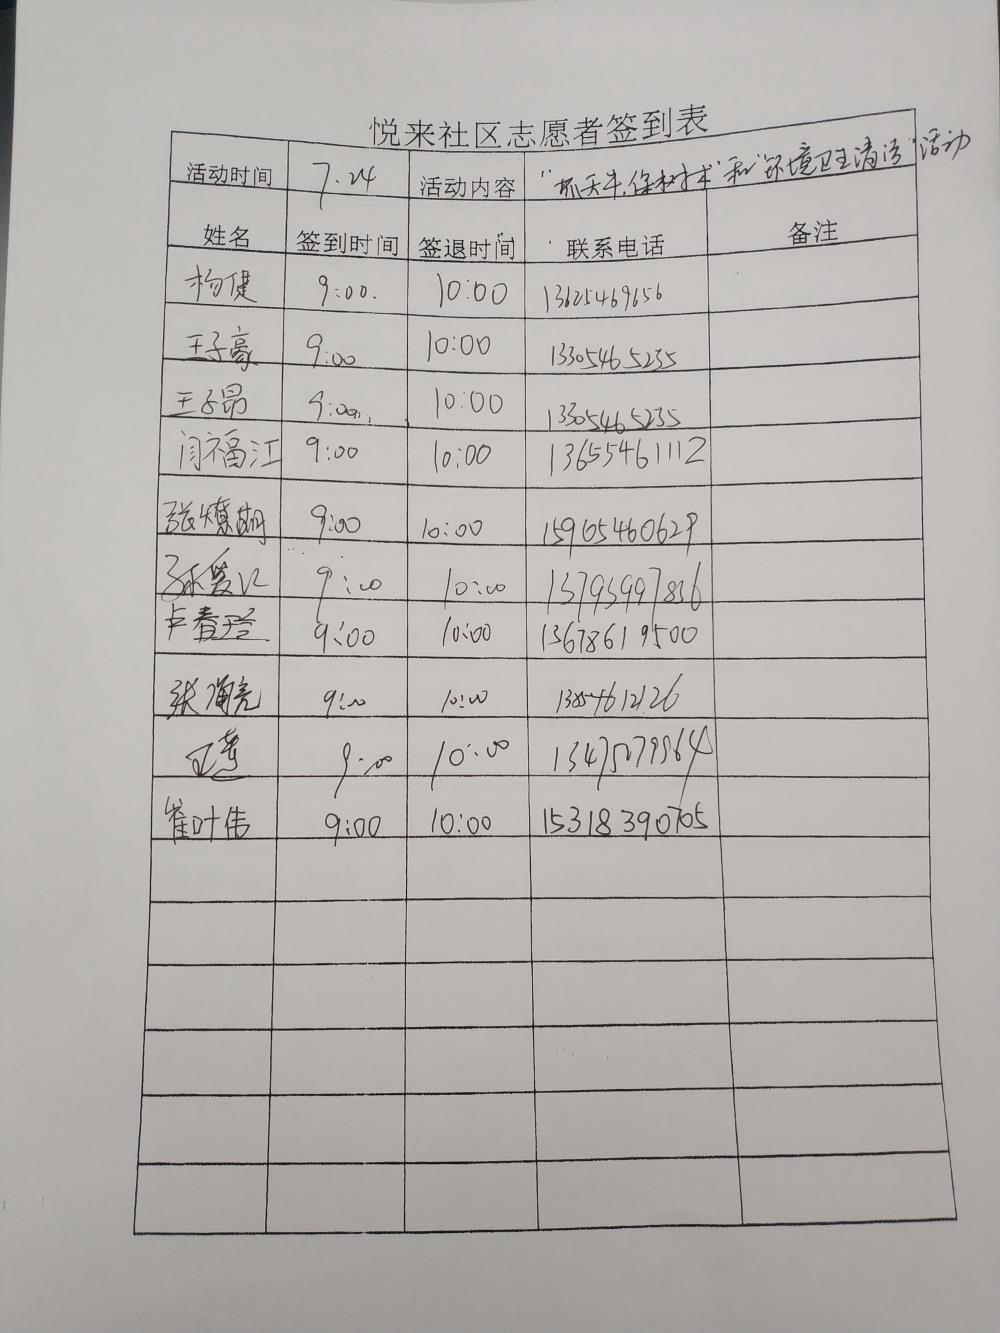 悦来社区志愿者签到表
活动时间 7.24 活动内容 "抓天牛,保树木"和"环境卫生清洁"活动
姓名 签到时间 签退时间 联系电话 备注
杨健 9:00. 10:00 13625469656
王子豪 9:00 10:00 13305465235
王子昂 9:00 10:00 13305465235
闫福江 9:00 10:00 13655461112
张 9:00 10:00 15905460629
孙爱 9:00 10:00
卢春玲 9:00 10:00 13678619500
张海亮 9:00 10:00
9:00 10:00
崔叶伟 9:00 10:00 15318390705